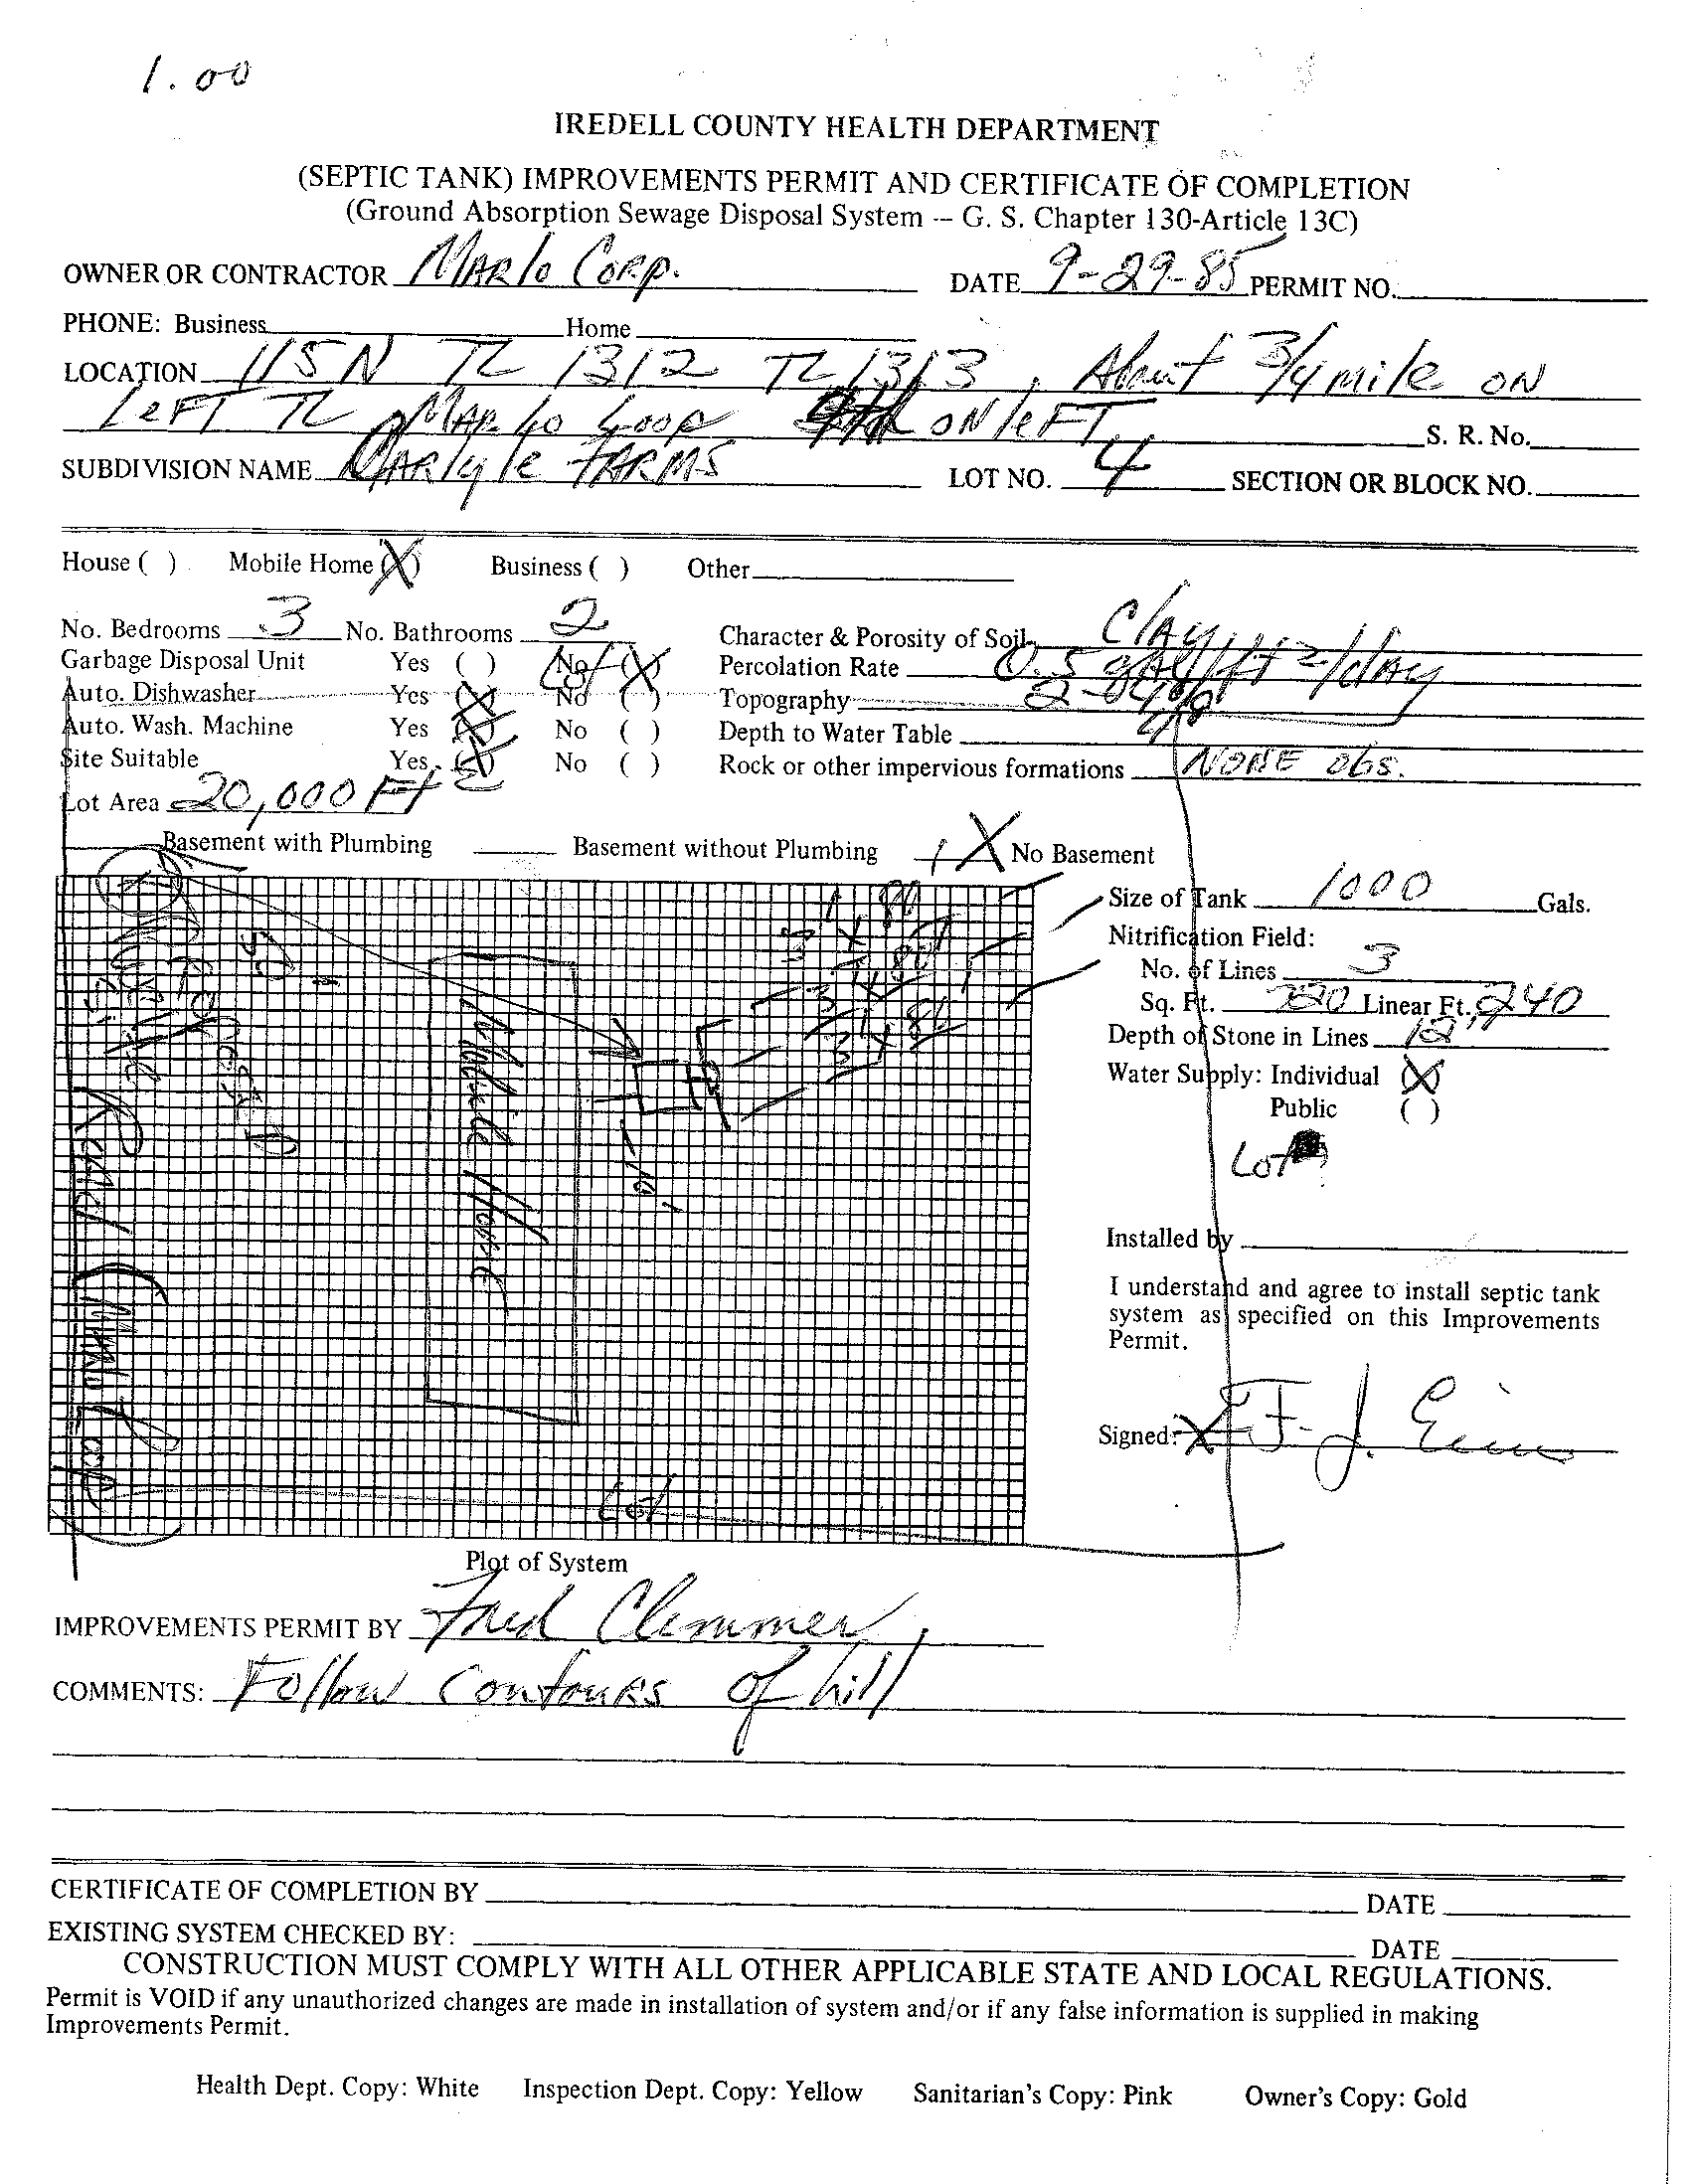 1.00
IREDELL COUNTY HEALTH DEPARTMENT
(SEPTIC TANK) IMPROVEMENTS PERMIT AND CERTIFICATE OF COMPLETION
(Ground Absorption Sewage Disposal System -- G. S. Chapter 130-Article 13C)
OWNER OR CONTRACTOR Marlo Corp. DATE 9-29-85 PERMIT NO.
PHONE: Business Home
LOCATION 115 N TL 1312 TL 1313, About 3/4 mile ON
LeFT TL MARlo Loop ON leFT S. R. No.
SUBDIVISION NAME CARlyle FARMS LOT NO. 4 SECTION OR BLOCK NO.
House ( ) Mobile Home (X) Business ( ) Other
No. Bedrooms 3 No. Bathrooms 2 Character & Porosity of Soil ClAy
Garbage Disposal Unit Yes ( ) No (X) Percolation Rate 0.5 gAl/ft2/dAy
Auto. Dishwasher Yes (X) No ( ) Topography 2-4%
Auto. Wash. Machine Yes (X) No ( ) Depth to Water Table
Site Suitable Yes (X) No ( ) Rock or other impervious formations NONE obs.
Lot Area 20,000 Ft 2
Basement with Plumbing Basement without Plumbing X No Basement
Size of Tank 1000 Gals.
Nitrification Field:
No. of Lines 3
Sq. Ft. 720 Linear Ft. 240
Depth of Stone in Lines 12"
Water Supply: Individual (X)
Public ( )
Lot
Mobile Home
10'
Road
Lot
Installed by
I understand and agree to install septic tank
system as specified on this Improvements
Permit.
Signed: X F. J.
Plot of System
IMPROVEMENTS PERMIT BY Fred Clemmer
COMMENTS: Follow Contours of hill
CERTIFICATE OF COMPLETION BY DATE
EXISTING SYSTEM CHECKED BY: DATE
CONSTRUCTION MUST COMPLY WITH ALL OTHER APPLICABLE STATE AND LOCAL REGULATIONS.
Permit is VOID if any unauthorized changes are made in installation of system and/or if any false information is supplied in making
Improvements Permit.
Health Dept. Copy: White Inspection Dept. Copy: Yellow Sanitarian's Copy: Pink Owner's Copy: Gold